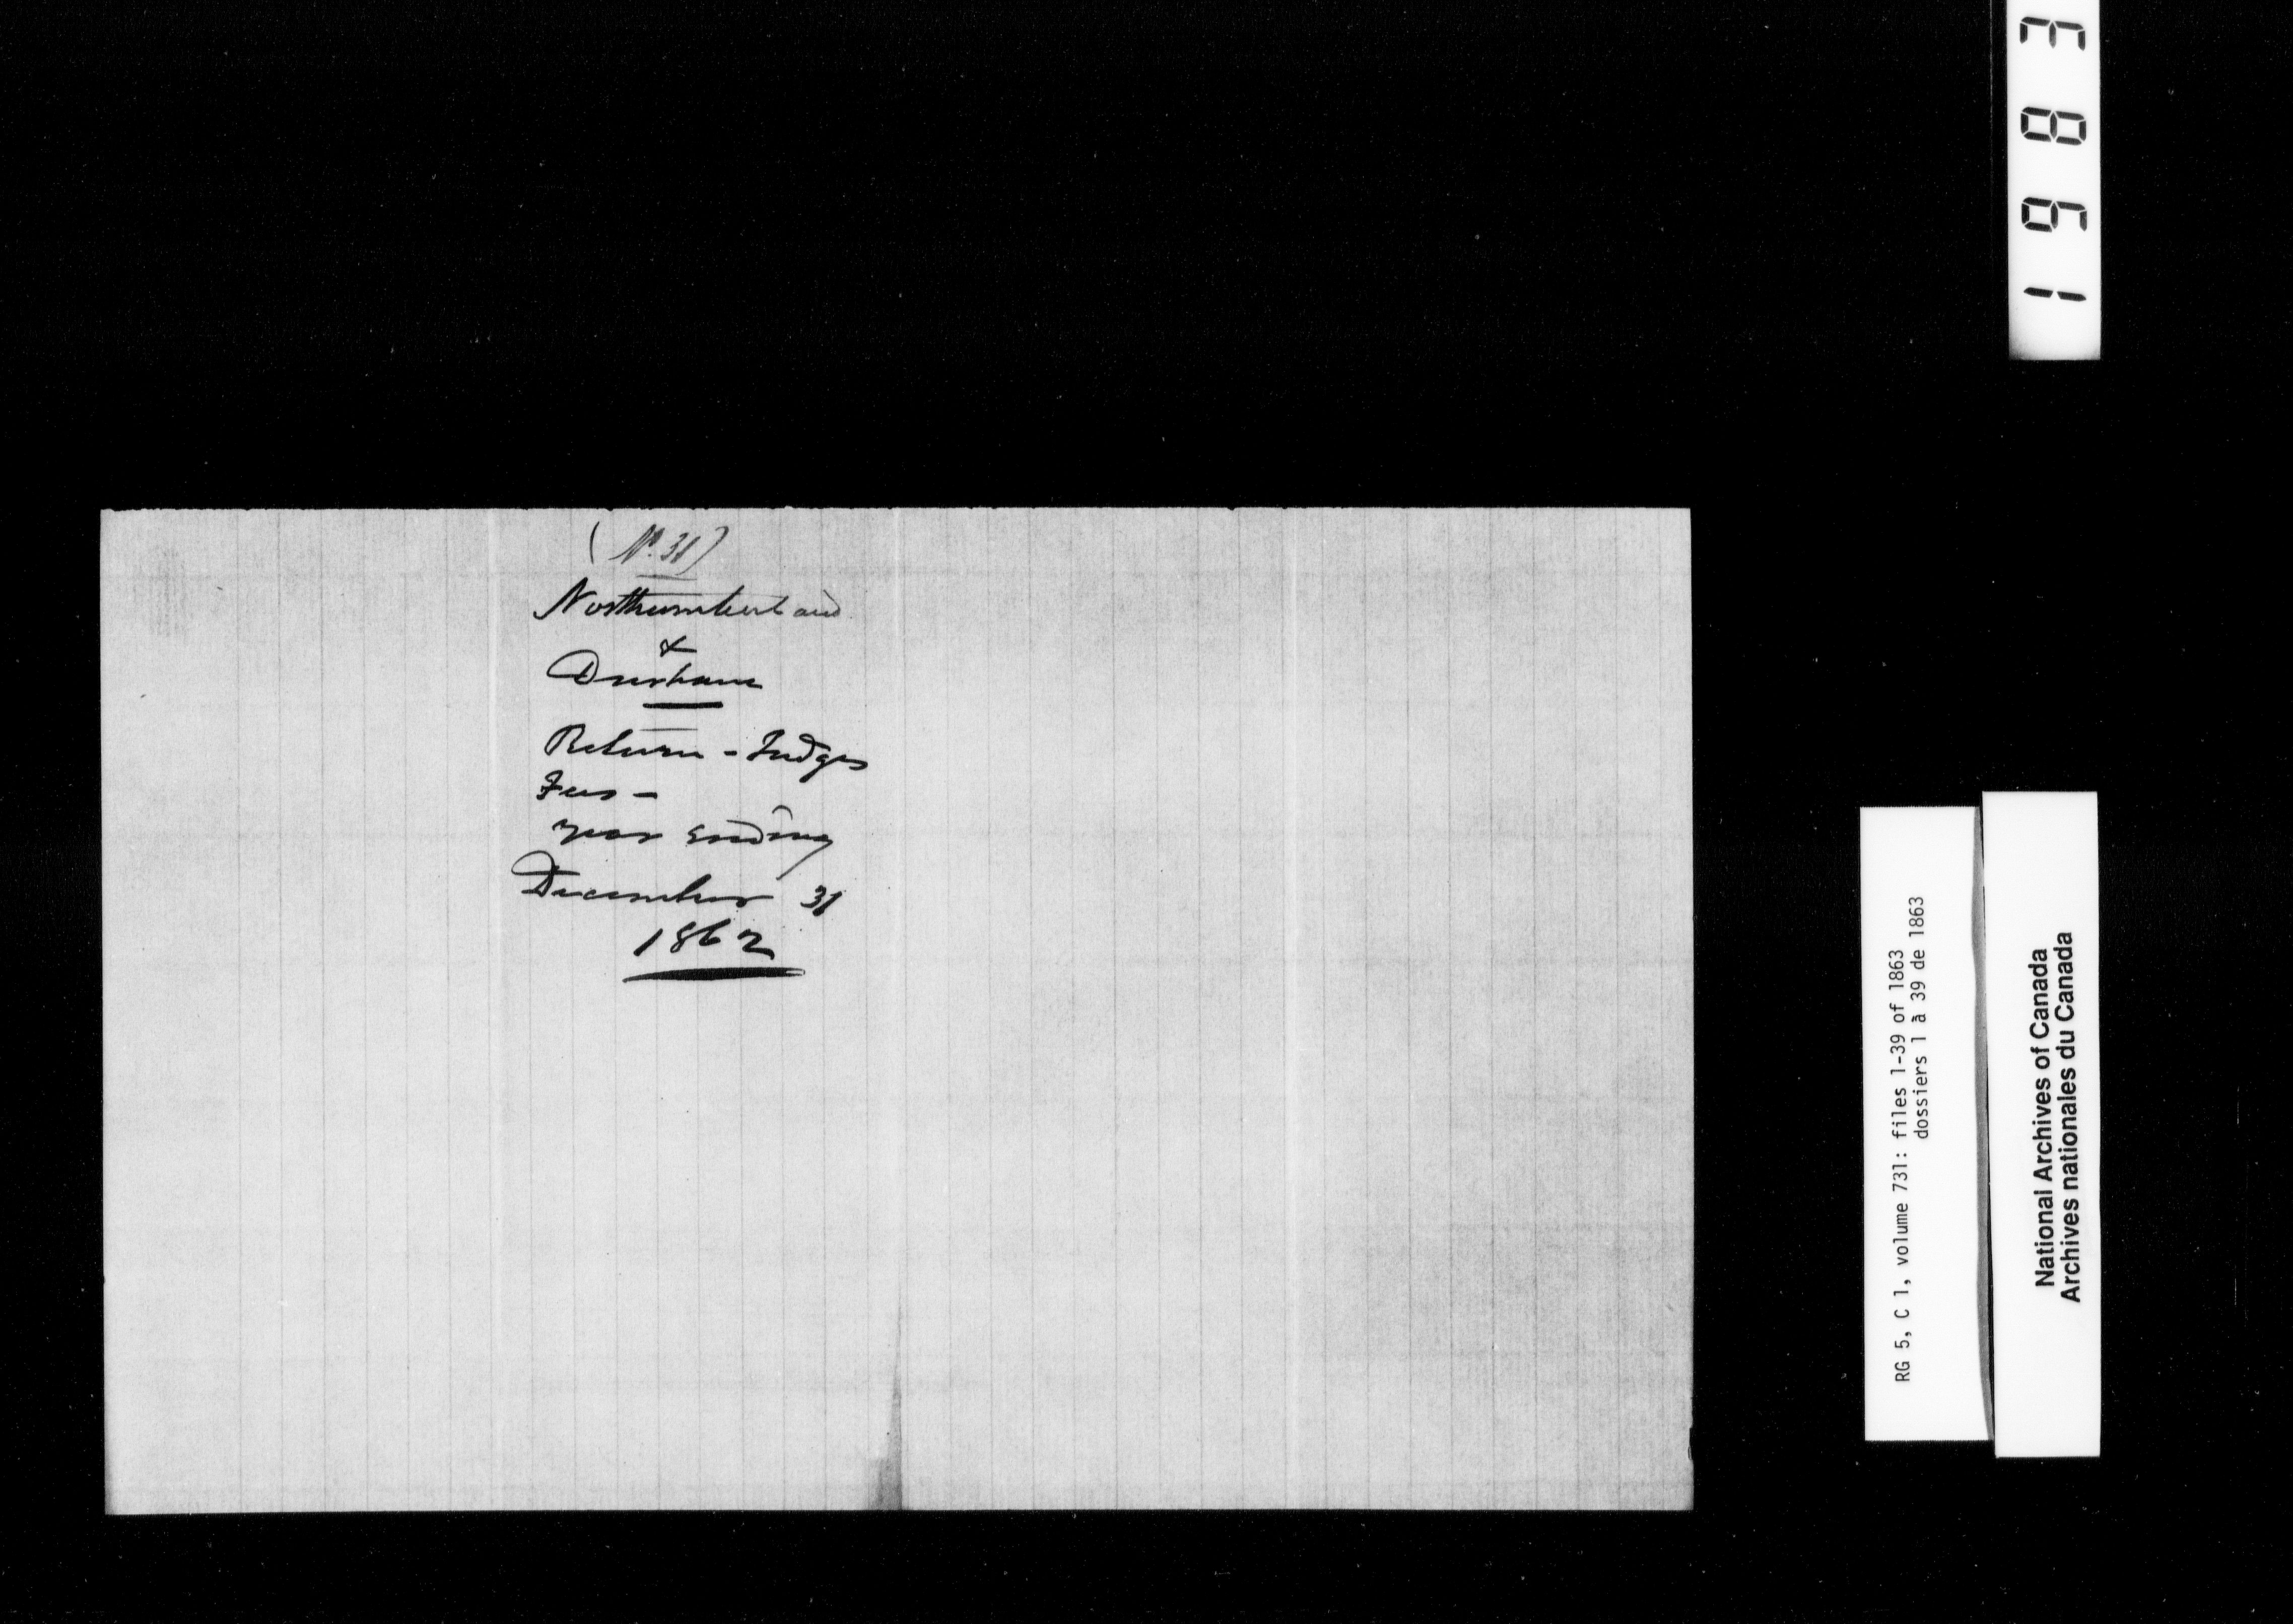 (No. 31)
Northumberland
&
Durham
Return - Judges
Fees -
year ending
December 31
1862
1983
RG 5, C 1, volume 731: files 1-39 of 1863
dossiers 1 à 39 de 1863
National Archives of Canada
Archives nationales du Canada